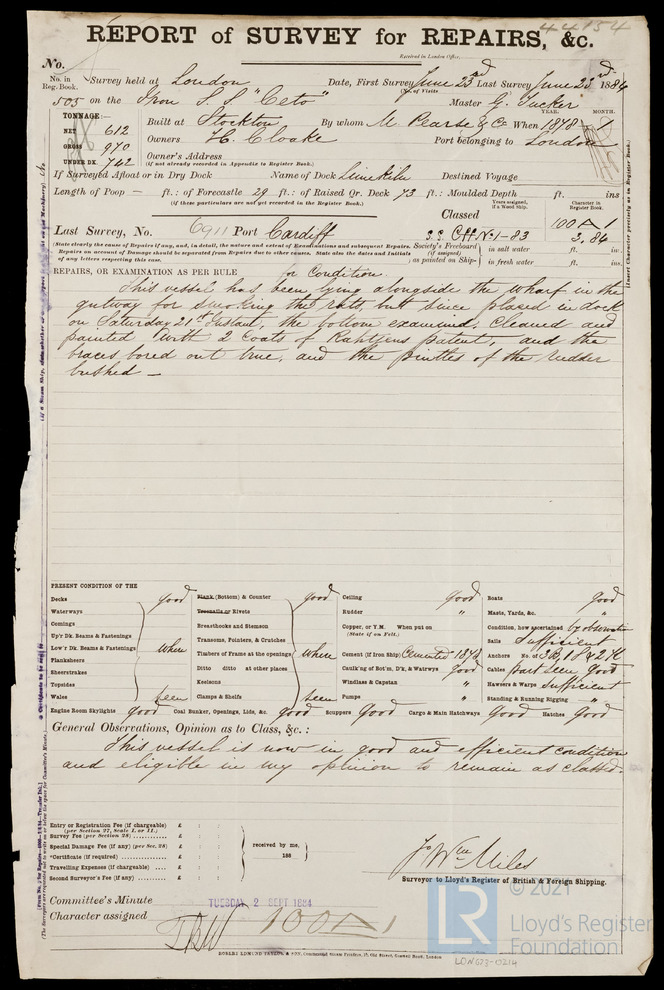 44154
REPORT of SURVEY for REPAIRS, &c.
Received in London Office,
No.
No. in Reg. Book. Survey held at London Date, First Survey June 23rd Last Survey June 23rd 1884
(No. of Visits
505 on the Iron S.S. "Ceto" Master G. Tucker
TONNAGE:— YEAR. MONTH.
NET 612 Built at Stockton By whom M. Pearse & Co When 1878
GROSS 970 Owners H. Cloake Port belonging to London
UNDER DK. 742 Owner's Address
(if not already recorded in Appendix to Register Book.)
If Surveyed Afloat or in Dry Dock Name of Dock Limekiln Destined Voyage
Length of Poop — ft.: of Forecastle 29 ft.: of Raised Qr. Deck 73 ft.: Moulded Depth ft. ins
(if these particulars are not yet recorded in the Register Book.) Years assigned, if a Wood Ship. Character in Register Book.
Classed 100 A 1
Last Survey, No. 6911 Port Cardiff S.S. Cff No 1-83 3.84
(State clearly the cause of Repairs if any, and, in detail, the nature and extent of Examinations and subsequent Repairs. Society's Freeboard in salt water ft. ins.
Repairs on account of Damage should be separated from Repairs due to other causes. State also the dates and Initials (if assigned)
of any letters respecting this case. as painted on Ship- in fresh water ft. ins.
REPAIRS, OR EXAMINATION AS PER RULE for Condition.
This vessel has been lying alongside the wharf in the
gutway for smoking the rats, but since placed in dock
on Saturday 21st Instant, the bottom examined, cleaned and
painted with 2 coats of Rahtjens patent, and the
braces bored out true, and the pintles of the rudder
bushed —
PRESENT CONDITION OF THE
Decks good Plank (Bottom) & Counter good Ceiling good Boats good
Waterways Treenails or Rivets Rudder " Masts, Yards, &c. "
Comings Breasthooks and Stemson Copper, or Y.M. When put on Condition, how ascertained by observation
(State if on Felt.)
Up'r Dk. Beams & Fastenings Transoms, Pointers, & Crutches Sails Sufficient
Low'r Dk. Beams & Fastenings when Timbers of Frame at the openings when Cement (if from Ship) Cemented 1878 Anchors No. of 3B, 1S & 2K
Planksheers Ditto ditto at other places Caulk'ng of Bot'm, D'k, & Watrwys good Cables part seen good
Sheerstrakes Keelsons Windlass & Capstan " Hawsers & Warps Sufficient
Topsides
Wales seen Clamps & Shelfs seen Pumps " Standing & Running Rigging "
Engine Room Skylights Good Coal Bunker, Openings, Lids, &c. good Scuppers Good Cargo & Main Hatchways Good Hatches Good
General Observations, Opinion as to Class, &c.:
This vessel is now in good and efficient condition
and eligible in my opinion to remain as classed.
Entry or Registration Fee (if chargeable) £ : :
(per Section 27, Scale I. or II.)
Survey Fee (per Section 28) £ : :
Special Damage Fee (if any) (per Sec. 28) £ : : received by me,
*Certificate (if required) £ : : 188
Travelling Expenses (if chargeable) £ : :
Second Surveyor's Fee (if any) £ : :
Jno Wm Miles
Surveyor to Lloyd's Register of British & Foreign Shipping.
Committee's Minute TUESDAY 2 SEPT 1884
Character assigned 100 A 1
ROBERT EDMUND TAYLOR & SON, Commercial Steam Printers, 19, Old Street, Goswell Road, London
LON673-0214
© 2021
LR
Lloyd's Register
Foundation